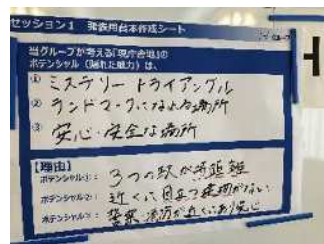 セッション1 発表用台本作成シート
当グループが考える「現庁舎地」の
ポテンシャル（隠れた魅力）は、
① ミステリートライアングル
② ランドマークになれる場所
③ 安心・安全な場所
【理由】
ポテンシャル①： 3つの駅が等距離
ポテンシャル②： 近くに目立つ建物がない
ポテンシャル③： 警察・消防が近くにあり安心